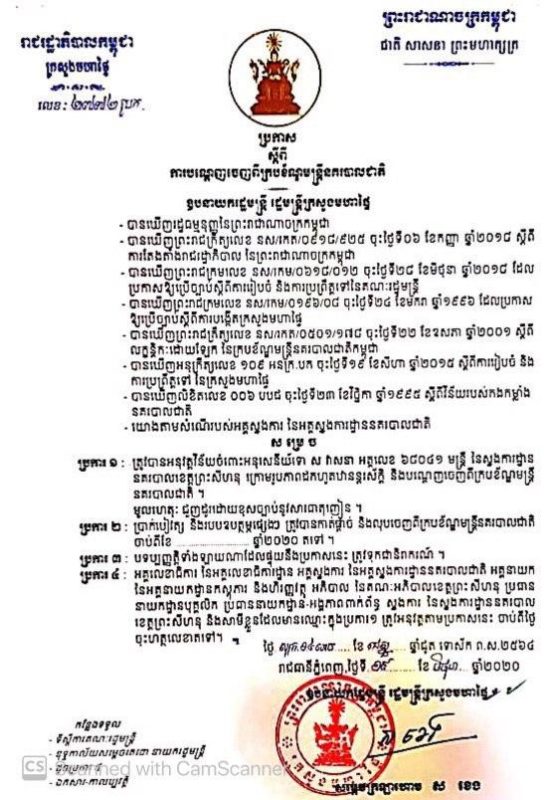 ព្រះរាជាណាចក្រកម្ពុជា
ជាតិ សាសនា ព្រះមហាក្សត្រ
រាជរដ្ឋាភិបាលកម្ពុជា
ក្រសួងមហាផ្ទៃ
លេខ: ២៧៧២ប្រក
ប្រកាស
ស្តីពី
ការបណ្តេញចេញពីក្របខ័ណ្ឌមន្ត្រីនគរបាលជាតិ
ឧបនាយករដ្ឋមន្ត្រី រដ្ឋមន្ត្រីក្រសួងមហាផ្ទៃ
- បានឃើញរដ្ឋធម្មនុញ្ញនៃព្រះរាជាណាចក្រកម្ពុជា
- បានឃើញព្រះរាជក្រឹត្យលេខ នស/រកត/០៩១៨/៩២៥ ចុះថ្ងៃទី០៦ ខែកញ្ញា ឆ្នាំ២០១៨ ស្តីពី
ការតែងតាំងរាជរដ្ឋាភិបាល នៃព្រះរាជាណាចក្រកម្ពុជា
- បានឃើញព្រះរាជក្រមលេខ នស/រកម/០៦១៨/០១២ ចុះថ្ងៃទី២៨ ខែមិថុនា ឆ្នាំ២០១៨ ដែល
ប្រកាសឱ្យប្រើច្បាប់ស្តីពីការរៀបចំ និងការប្រព្រឹត្តទៅនៃគណៈរដ្ឋមន្ត្រី
- បានឃើញព្រះរាជក្រមលេខ នស/រកម/០១៩៦/០៨ ចុះថ្ងៃទី២៤ ខែមករា ឆ្នាំ១៩៩៦ ដែលប្រកាស
ឱ្យប្រើច្បាប់ស្តីពីការបង្កើតក្រសួងមហាផ្ទៃ
- បានឃើញព្រះរាជក្រឹត្យលេខ នស/រកត/០៥០១/១៧៨ ចុះថ្ងៃទី២២ ខែឧសភា ឆ្នាំ២០០១ ស្តីពី
លក្ខន្តិកៈដោយឡែក នៃក្របខ័ណ្ឌមន្ត្រីនគរបាលជាតិកម្ពុជា
- បានឃើញអនុក្រឹត្យលេខ ១០៩ អនក្រ.បក ចុះថ្ងៃទី១៩ ខែសីហា ឆ្នាំ២០១៥ ស្តីពីការរៀបចំ និង
ការប្រព្រឹត្តទៅ នៃក្រសួងមហាផ្ទៃ
- បានឃើញលិខិតលេខ ០០៦ បបជ ចុះថ្ងៃទី២៣ ខែវិច្ឆិកា ឆ្នាំ១៩៩៥ ស្តីពីវិន័យរបស់កងកម្លាំង
នគរបាលជាតិ
- យោងតាមសំណើរបស់អគ្គស្នងការ នៃអគ្គស្នងការដ្ឋាននគរបាលជាតិ
ស ម្រេ ច
ប្រការ ១ : ត្រូវបានអនុវត្តវិន័យចំពោះអនុសេនីយ៍ទោ ស វាសនា អត្តលេខ ៦៨០៤១ មន្ត្រី នៃស្នងការដ្ឋាន
នគរបាលខេត្តព្រះសីហនុ ក្រោមរូបភាពដកហូតឋានន្តរស័ក្តិ និងបណ្តេញចេញពីក្របខ័ណ្ឌមន្ត្រី
នគរបាលជាតិ ។
មូលហេតុ: ជួញដូរដោយខុសច្បាប់នូវសារធាតុញៀន ។
ប្រការ ២ : ប្រាក់បៀវត្ស និងរបបឧបត្ថម្ភផ្សេងៗ ត្រូវបានកាត់ផ្តាច់ និងលុបចេញពីក្របខ័ណ្ឌមន្ត្រីនគរបាលជាតិ
ចាប់ពីខែ ........................ ឆ្នាំ២០២០ តទៅ ។
ប្រការ ៣ : បទប្បញ្ញត្តិទាំងឡាយណាដែលផ្ទុយនឹងប្រកាសនេះ ត្រូវទុកជានិរាករណ៍ ។
ប្រការ ៤ : អគ្គលេខាធិការ នៃអគ្គលេខាធិការដ្ឋាន អគ្គស្នងការ នៃអគ្គស្នងការដ្ឋាននគរបាលជាតិ អគ្គនាយក
នៃអគ្គនាយកដ្ឋានភស្តុភារ និងហិរញ្ញវត្ថុ អភិបាល នៃគណៈអភិបាលខេត្តព្រះសីហនុ ប្រធាន
នាយកដ្ឋានបុគ្គលិក ប្រធាននាយកដ្ឋាន-អង្គភាពពាក់ព័ន្ធ ស្នងការ នៃស្នងការដ្ឋាននគរបាល
ខេត្តព្រះសីហនុ និងសាមីខ្លួនដែលមានឈ្មោះក្នុងប្រការ១ ត្រូវអនុវត្តតាមប្រកាសនេះ ចាប់ពីថ្ងៃ
ចុះហត្ថលេខាតទៅ។
ថ្ងៃ ខែ ឆ្នាំជូត ទោស័ក ព.ស.២៥៦៤
រាជធានីភ្នំពេញ,ថ្ងៃទី ខែ មិថុនា ឆ្នាំ២០២០
ឧបនាយករដ្ឋមន្ត្រី រដ្ឋមន្ត្រីក្រសួងមហាផ្ទៃ
កន្លែងទទួល
- ទីស្តីការគណៈរដ្ឋមន្ត្រី
- ខុទ្ទកាល័យសម្តេចតេជោ នាយករដ្ឋមន្ត្រី
- ដូចប្រការ ៤
- ឯកសារ-កាលប្បវត្តិ
CS Scanned with CamScanner
សម្តេចក្រឡាហោម ស ខេង